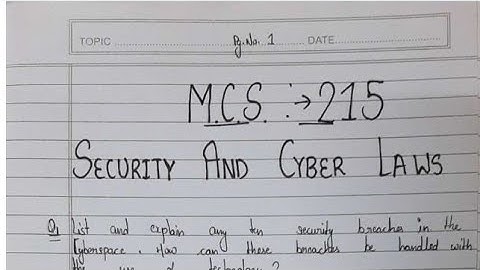 TOPIC Pg. No. 1 DATE
M.C.S. :→ 215
SECURITY AND CYBER LAWS
Q1 List and explain any ten security breaches in the
Cyberspace. How can these breaches be handled with
the use of technology?